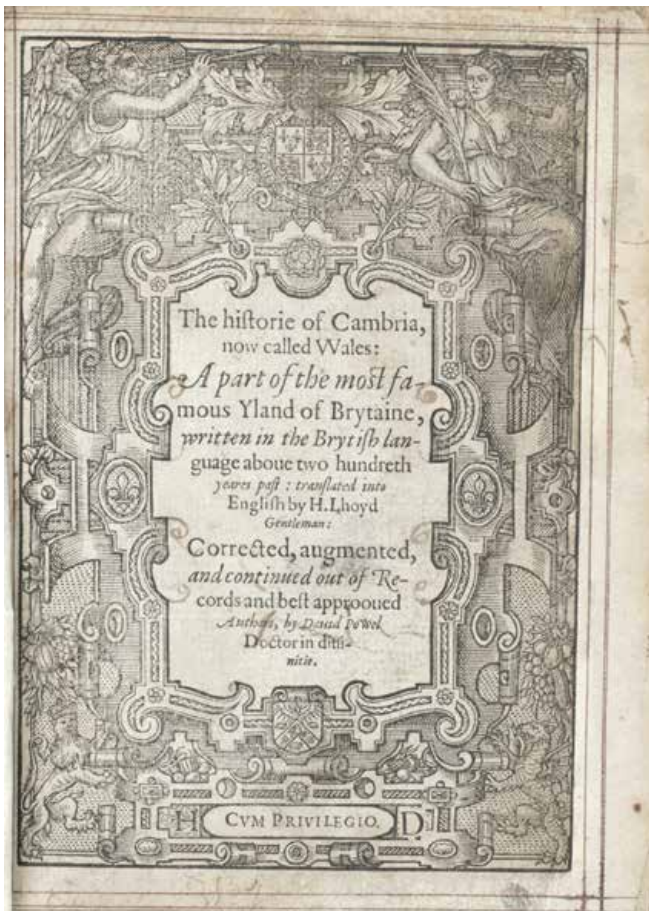 The hiſtorie of Cambria,
now called Wales:
A part of the moſt fa-
mous Yland of Brytaine,
written in the Brytiſh lan-
guage aboue two hundreth
yeares paſt : tranſlated into
Engliſh by H. Lhoyd
Gentleman:
Corrected, augmented,
and continued out of Re-
cords and beſt approoued
Authors, by Dauid Powel
Doctor in diui-
nitie.
H CVM PRIVILEGIO. D